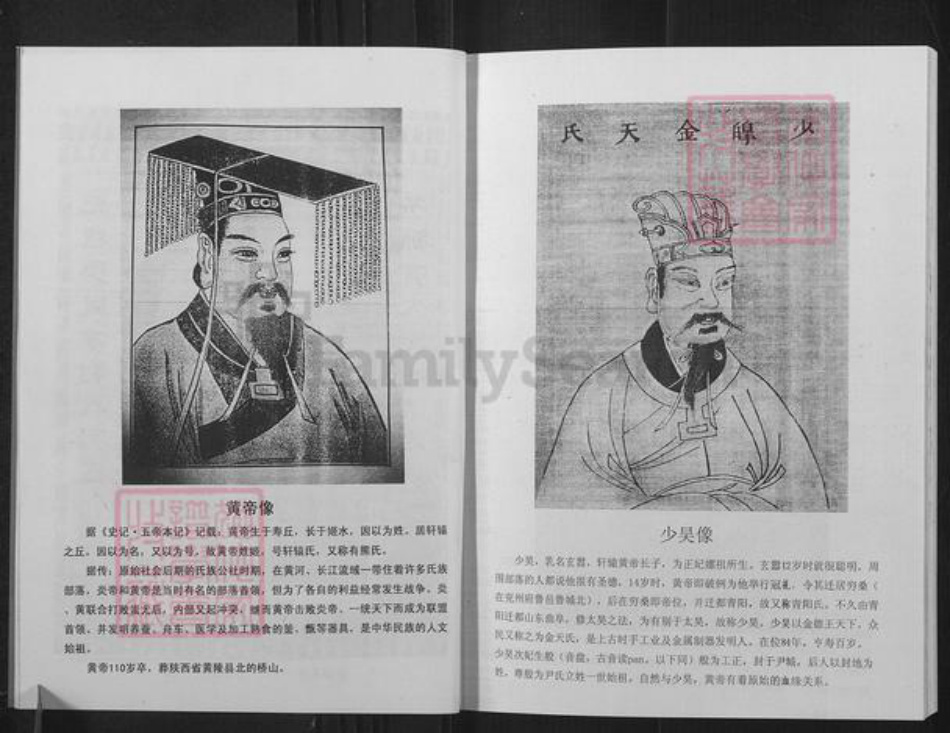 黄帝像
据《史记·五帝本记》记载：黄帝生于寿丘，长于姬水，因以为姓，居轩辕
之丘，因以为名，又以为号，故黄帝姓姬，号轩辕氏，又称有熊氏。
据传：原始社会后期的氏族公社时期，在黄河、长江流域一带住着许多氏族
部落，炎帝和黄帝是当时有名的部落首领，但为了各自的利益经常发生战争。炎
、黄联合打败蚩尤后，内部又起冲突，继而黄帝击败炎帝，一统天下而成为联盟
首领，并发明养蚕、舟车、医学及加工熟食的釜、甑等器具，是中华民族的人文
始祖。
黄帝110岁卒，葬陕西省黄陵县北的桥山。
少皞金天氏
少昊像
少昊，乳名玄嚣，轩辕黄帝长子，为正妃嫘祖所生。玄嚣12岁时就很聪明，周
围部落的人都说他很有圣德，14岁时，黄帝即破例为他举行冠礼，令其迁居穷桑（
在兖州府鲁邑鲁城北），后在穷桑即帝位，并迁都青阳，故又称青阳氏。不久由青
阳迁都山东曲阜，修太昊之法，为有别于太昊，故称少昊，少昊以金德王天下，众
民又称之为金天氏，是上古时手工业及金属制器发明人。在位84年，享寿百岁。
少昊次妃生般（音盘，古音读pan，以下同）般为工正，封于尹城，后人以封地为
姓，尊般为尹氏立姓一世始祖，自然与少昊，黄帝有着原始的血缘关系。
FamilySea